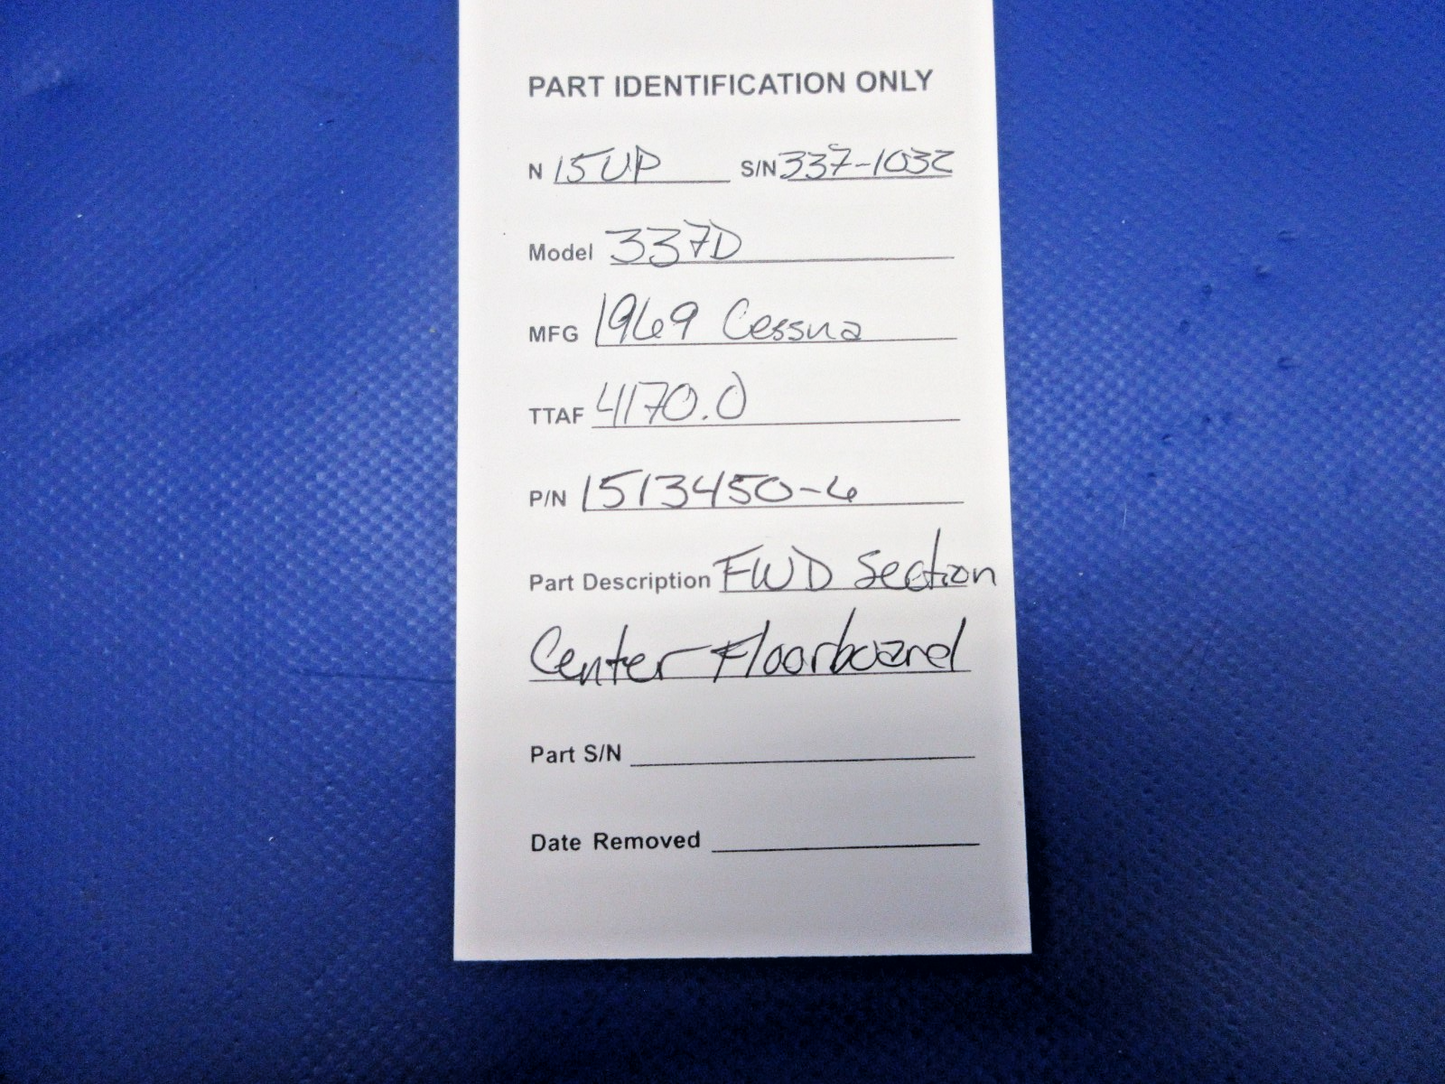 PART IDENTIFICATION ONLY
N 15UP S/N 337-1032
Model 337D
MFG 1969 Cessna
TTAF 4170.0
P/N 1513450-6
Part Description FWD Section
Center Floorboard
Part S/N
Date Removed